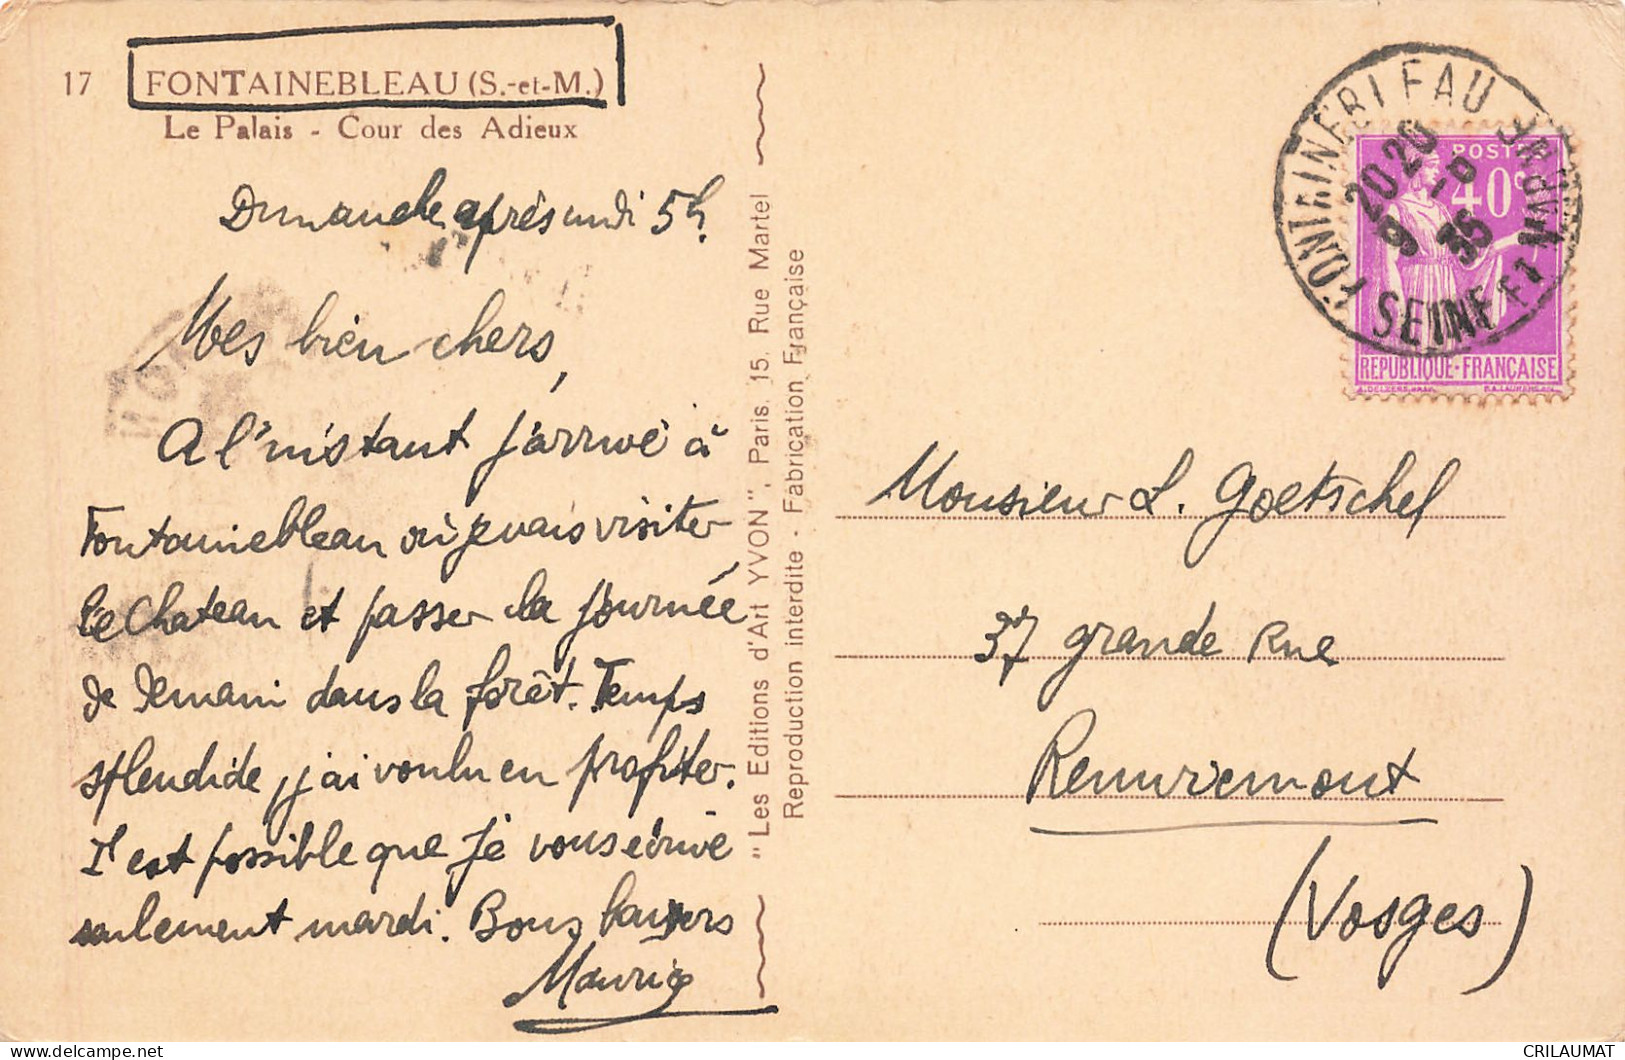 17 FONTAINEBLEAU (S.-et-M.)
Le Palais - Cour des Adieux
Dimanche après midi 5h.
Mes bien chers,
A l'instant j'arrive à
Fontainebleau où je vais visiter
le Chateau et passer la journée
de demain dans la forêt. Temps
splendide, j'ai voulu en profiter.
Il est possible que je vous écrive
seulement mardi. Bons baisers
Maurice
"Les Editions d'Art YVON", Paris, 15, Rue Martel
Reproduction interdite - Fabrication Française
FONTAINEBLEAU
20 20
9 -6
35
SEINE ET MARNE
POSTES
40c
REPUBLIQUE-FRANÇAISE
Monsieur L. Goetschel
37 grande Rue
Remiremont
(Vosges)
CRILAUMAT